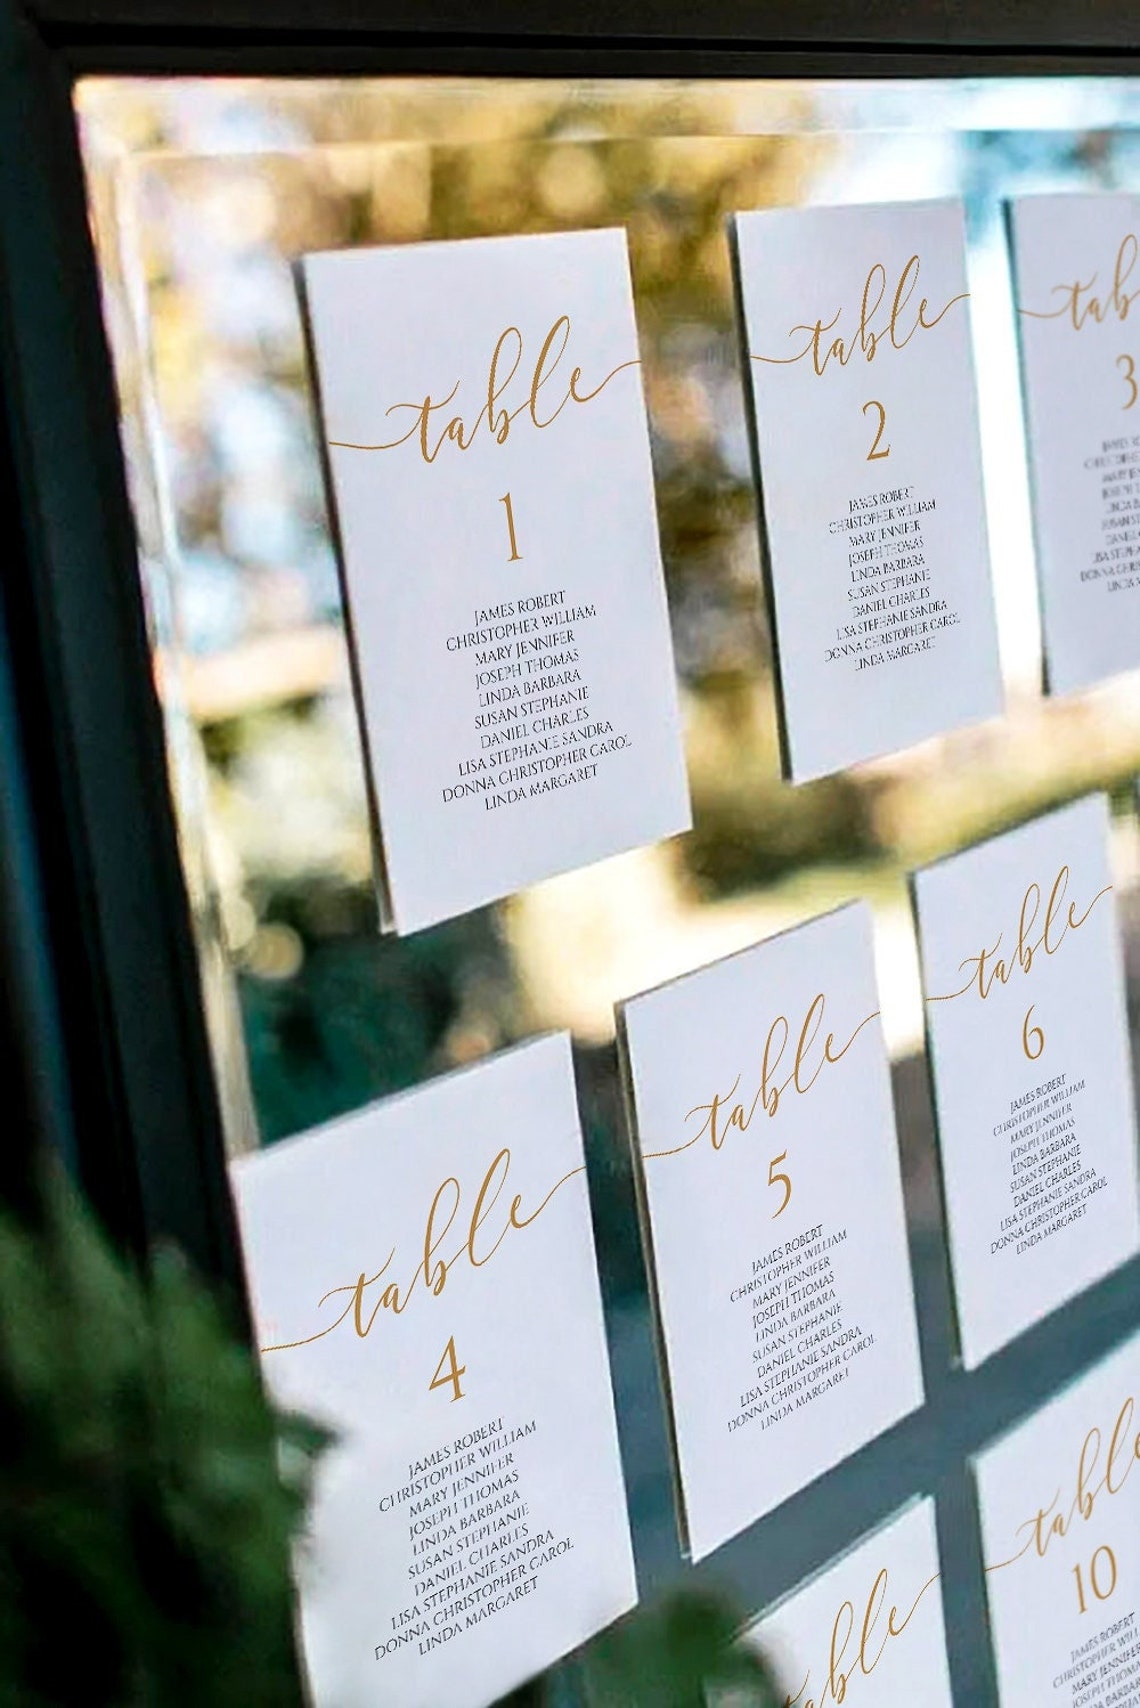 table
1
JAMES ROBERT
CHRISTOPHER WILLIAM
MARY JENNIFER
JOSEPH THOMAS
LINDA BARBARA
SUSAN STEPHANIE
DANIEL CHARLES
LISA STEPHANIE SANDRA
DONNA CHRISTOPHER CAROL
LINDA MARGARET
table
2
JAMES ROBERT
CHRISTOPHER WILLIAM
MARY JENNIFER
JOSEPH THOMAS
LINDA BARBARA
SUSAN STEPHANIE
DANIEL CHARLES
LISA STEPHANIE SANDRA
DONNA CHRISTOPHER CAROL
LINDA MARGARET
tab
3
JAMES
CHRISTOPHER
MARY
JOSEPH
LINDA
SUSAN
DANIEL
LISA
DONNA
LINDA
table
4
JAMES ROBERT
CHRISTOPHER WILLIAM
MARY JENNIFER
JOSEPH THOMAS
LINDA BARBARA
SUSAN STEPHANIE
DANIEL CHARLES
LISA STEPHANIE SANDRA
DONNA CHRISTOPHER CAROL
LINDA MARGARET
table
5
JAMES ROBERT
CHRISTOPHER WILLIAM
MARY JENNIFER
JOSEPH THOMAS
LINDA BARBARA
SUSAN STEPHANIE
DANIEL CHARLES
LISA STEPHANIE SANDRA
DONNA CHRISTOPHER CAROL
LINDA MARGARET
table
6
JAMES ROBERT
CHRISTOPHER WILLIAM
MARY JENNIFER
JOSEPH THOMAS
LINDA BARBARA
SUSAN STEPHANIE
DANIEL CHARLES
LISA STEPHANIE SANDRA
DONNA CHRISTOPHER CAROL
LINDA MARGARET
table
table
10
JAMES ROBERT
CHRISTOPHER WILL
MARY JENNIFER
JOSEPH THOMAS